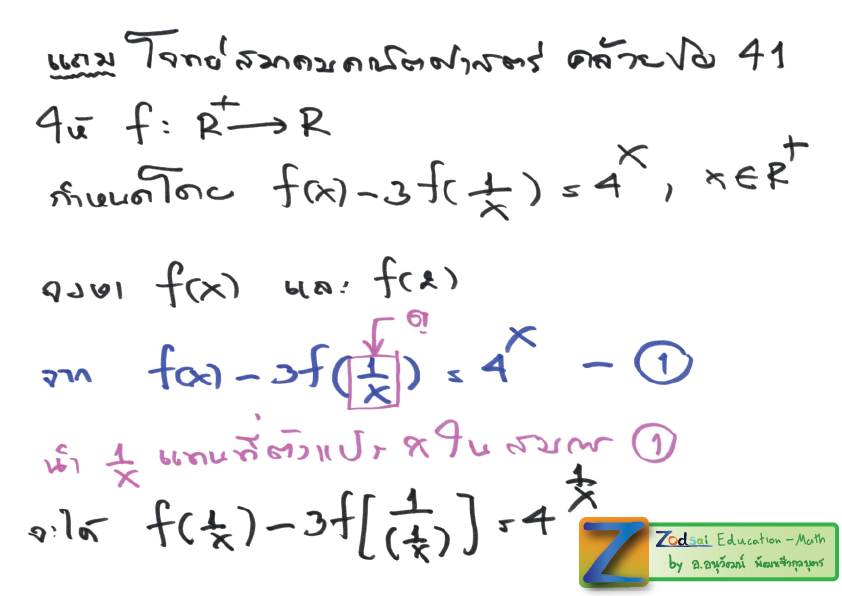 แถม โจทย์สมาคมคณิตศาสตร์ คล้ายข้อ 41
ให้ f: R⁺ → R
กำหนดโดย f(x) - 3f(1/x) = 4^x, x ∈ R⁺
จงหา f(x) และ f(2)
ดู
จาก f(x) - 3f(1/x) = 4^x - ①
นำ 1/x แทนที่ตัวแปร x ในสมการ ①
จะได้ f(1/x) - 3f[1/(1/x)] = 4^(1/x)
Z
Zodsai Education - Math
by อ.อนุวัฒน์